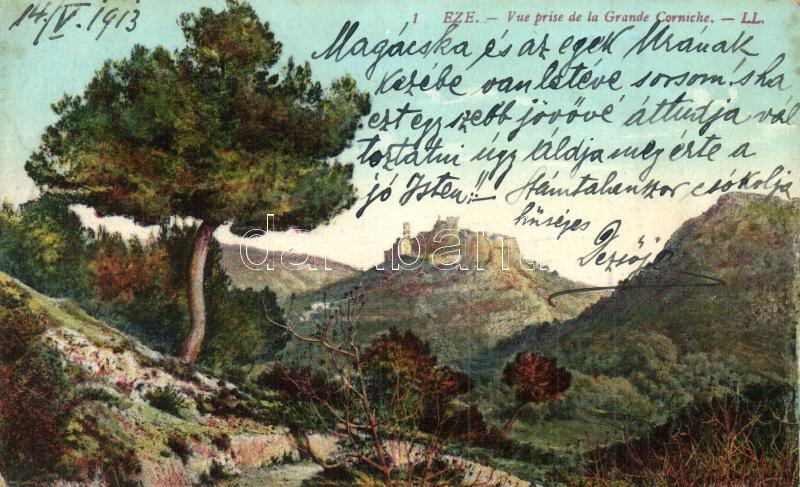 14/V. 1913
1 EZE. — Vue prise de la Grande Corniche. — LL.
Magácska és az egek Urának
kezébe van letéve sorsom, s ha
ezt egy szebb jövővé áttudja vál
toztatni úgy áldja meg érte a
jó Isten!! Számtalanszor csókolja
hűséges
Dezsője
darabanth